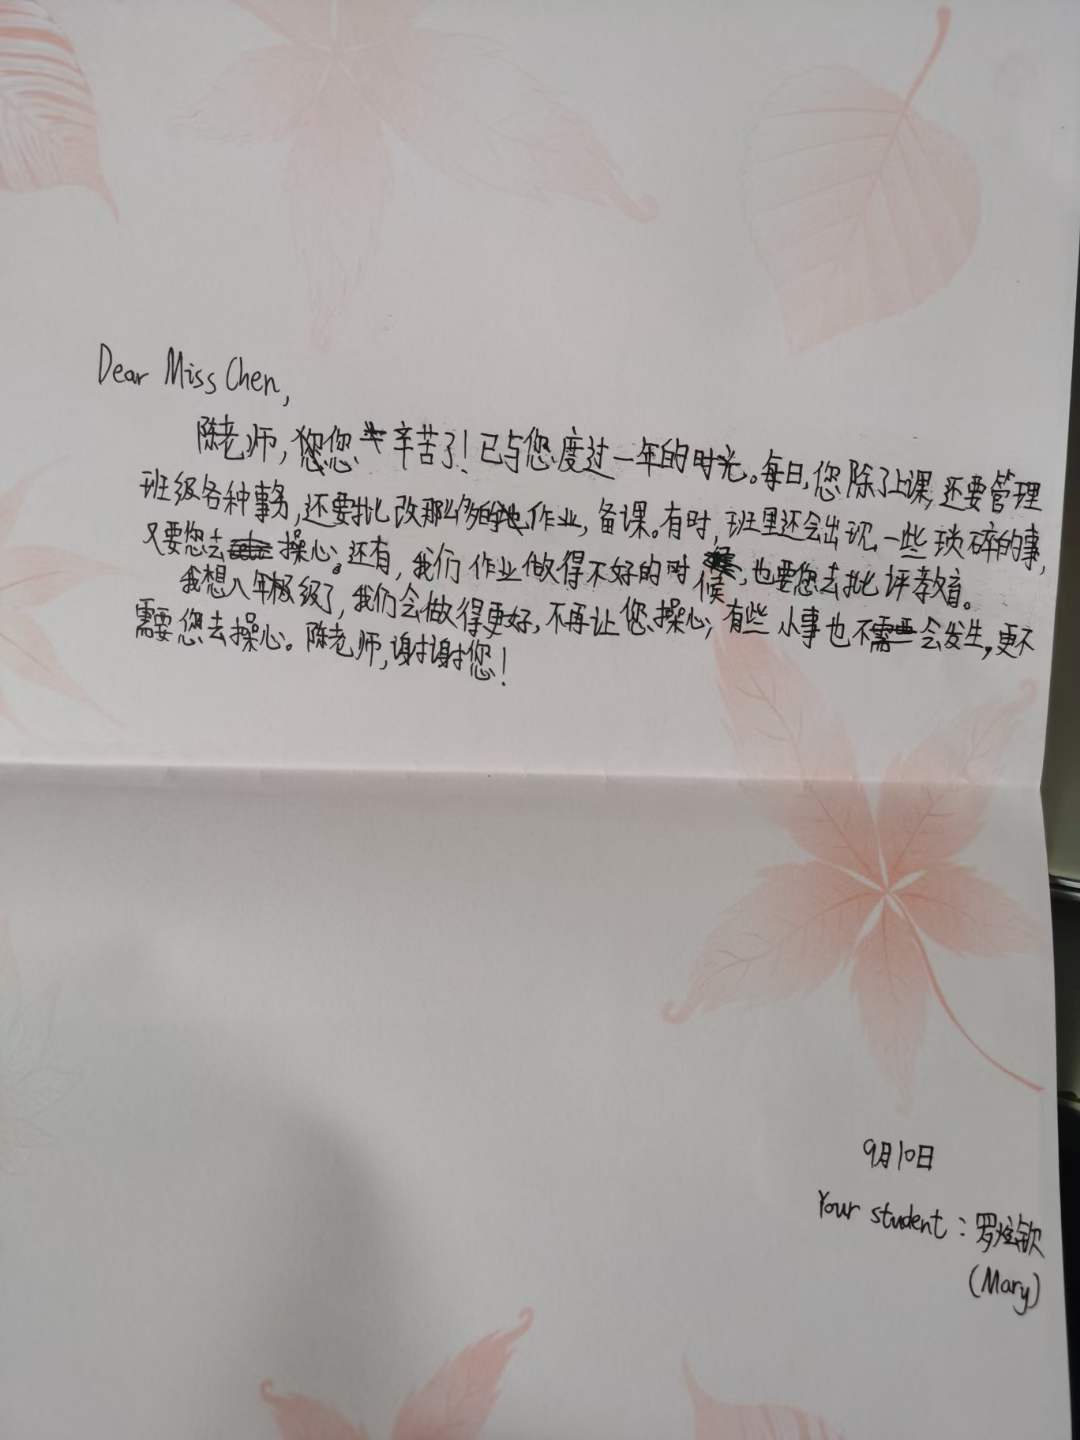 Dear Miss Chen,
陈老师，您辛苦了！已与您度过一年的时光。每日，您除了上课，还要管理
班级各种事务，还要批改那么多的作业，备课。有时，班里还会出现一些琐碎的事，
又要您去操心。还有，我们作业做得不好的时候，也要您去批评教育。
我想八年级了，我们会做得更好，不再让您操心；有些小事也不会发生，更不
需要您去操心。陈老师，谢谢您！
9月10日
Your student：罗钦
(Mary)